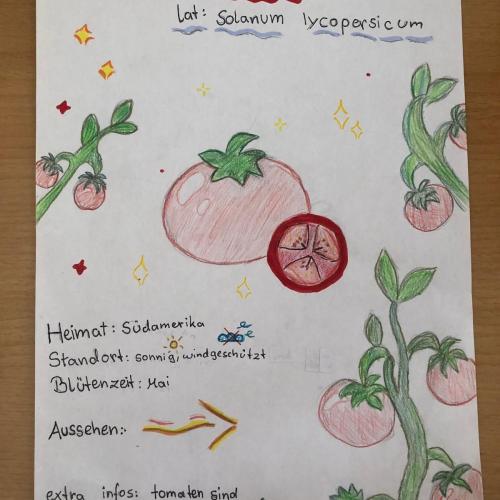 Lat: Solanum lycopersicum
Heimat: Südamerika
Standort: sonnig, windgeschützt
Blütenzeit: Mai
Aussehen:
extra infos: tomaten sind